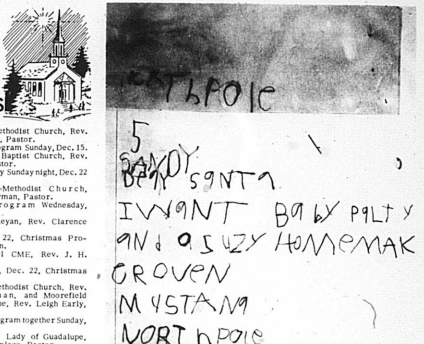 ethodist Church, Rev.
, Pastor.
ogram Sunday, Dec. 15.
Baptist Church, Rev.
stor.
y Sunday night, Dec. 22
-Methodist Church,
rman, Pastor.
rogram Wednesday,
eyan, Rev. Clarence
22, Christmas Pro-
n.
l CME, Rev. J. H.
, Dec. 22, Christmas
ethodist Church, Rev.
man, and Moorefield
ne, Rev. Leigh Early,
gram together Sunday,
Lady of Guadalupe,
Pastor.
thPole
5
SANDY
Dear santa
I WaNT Baby Palty
aNd a SUZY HOMemaK
ER OVEN
MUSTANG
NORThPOle